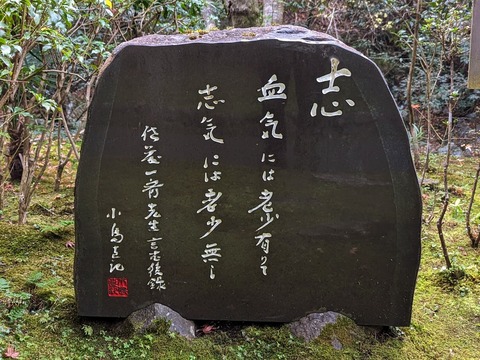 志
血気には老少有りて
志気には老少無し
佐藤一斎先生言志後録
小島直記